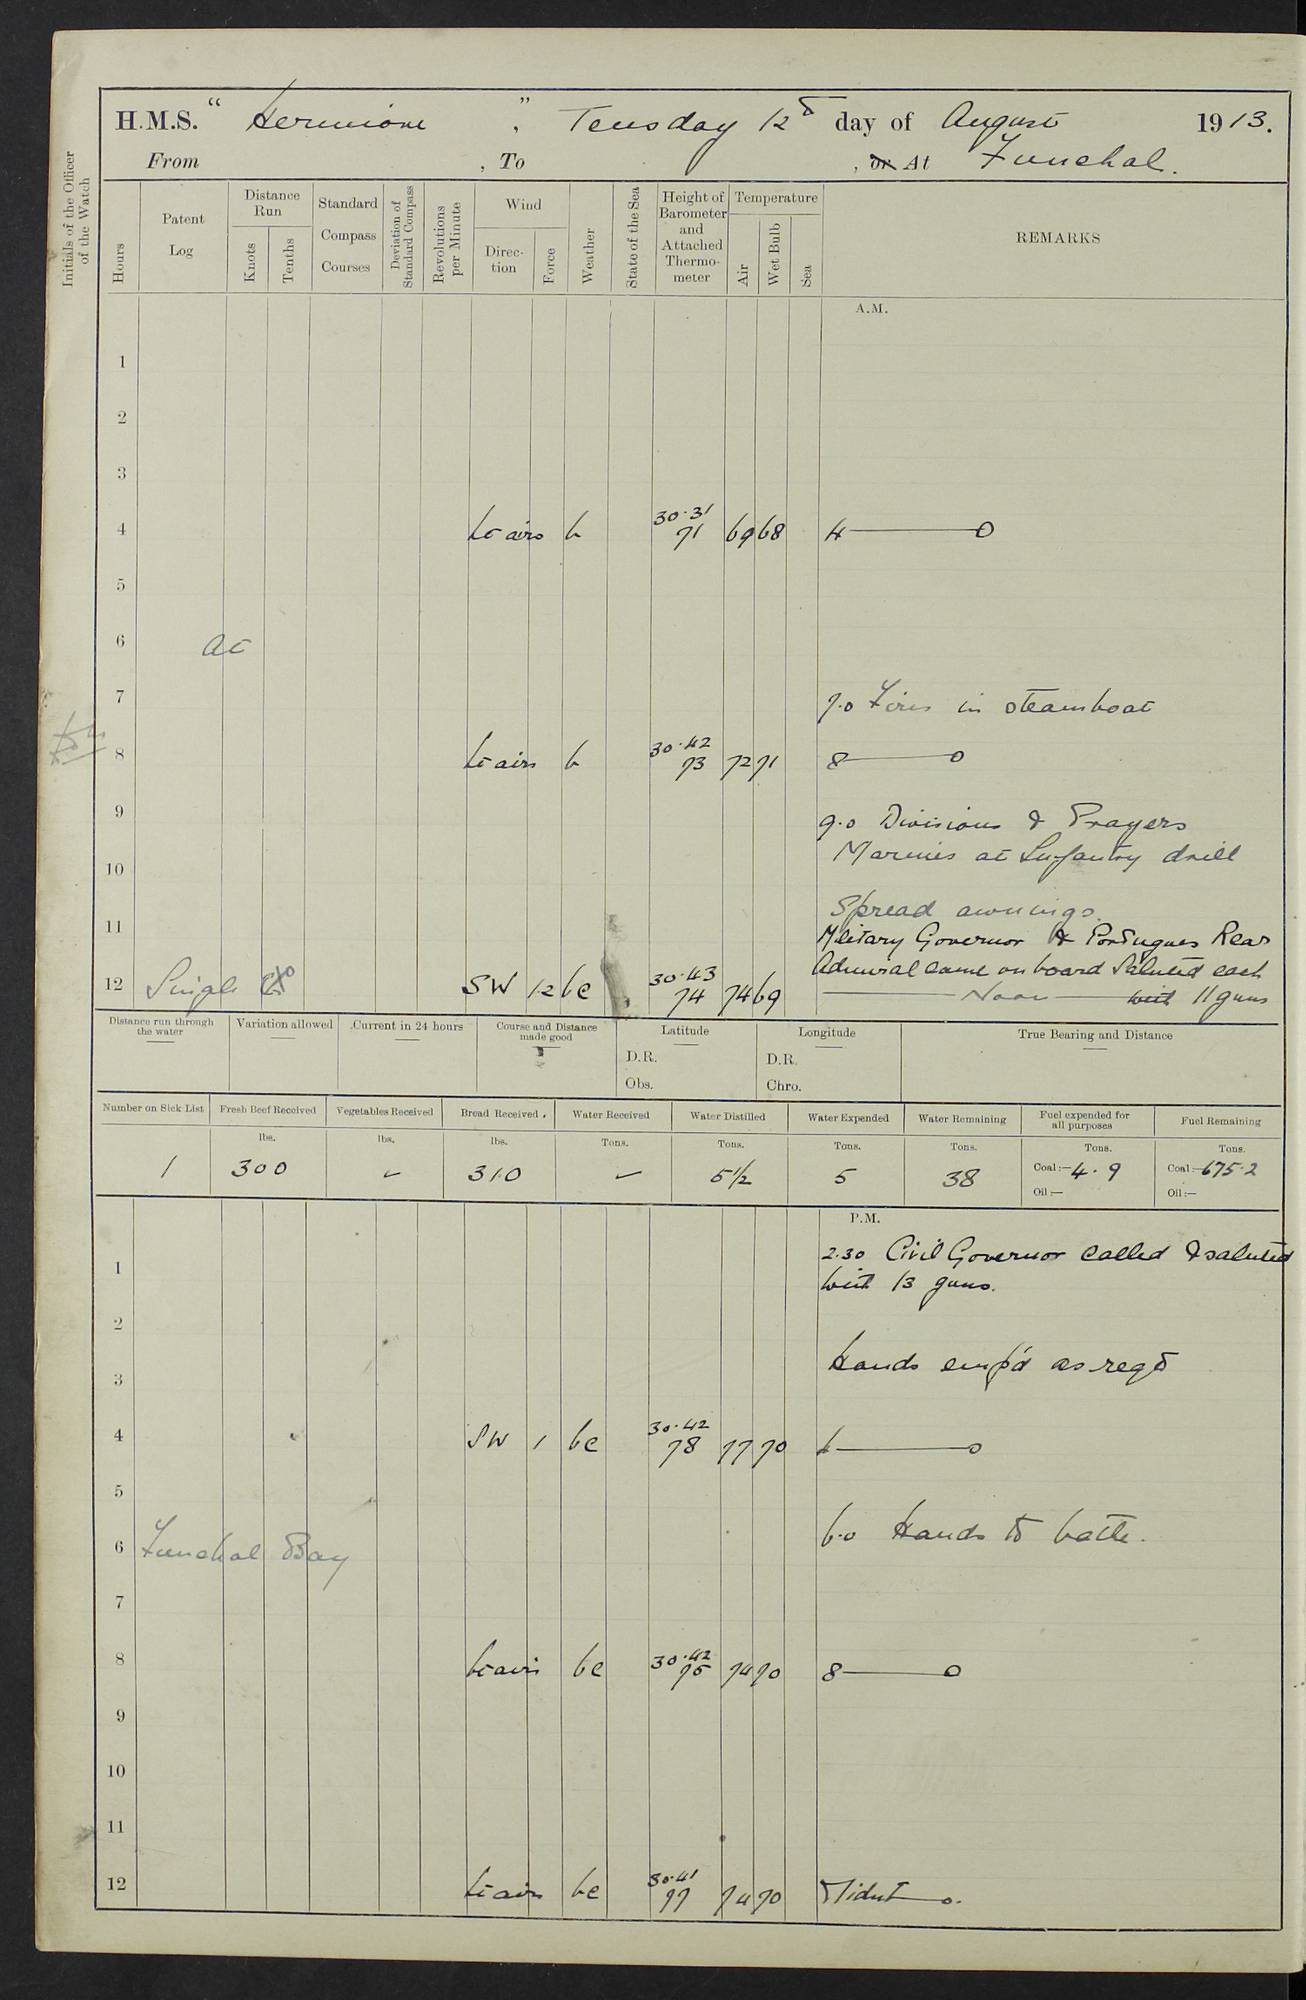 H.M.S. "Hermione", Tuesday 12th day of August 1913.
From , To , or At Funchal.
Initials of the Officer of the Watch
Hours
Patent Log
Distance Run
Knots
Tenths
Standard Compass Courses
Deviation of Standard Compass
Revolutions per Minute
Wind
Direction
Force
Weather
State of the Sea
Height of Barometer and Attached Thermometer
Temperature
Air
Wet Bulb
Sea
REMARKS
A.M.
1
2
3
4 Lt airs b 30.31 71 69 68 4 — 0
5
6 At
7 7.0 Fires in steamboat
8 Lt airs b 30.42 73 72 71 8 — 0
9 9.0 Divisions & Prayers
Marines at Infantry drill
10
Spread awnings.
11 Military Governor & Portugues Rear
Admiral came on board Saluted each
12 Single SW 1·2 bc 30.43 74 74 69 — Noon — with 11 guns
Distance run through the water
Variation allowed
Current in 24 hours
Course and Distance made good
Latitude
D.R.
Obs.
Longitude
D.R.
Chro.
True Bearing and Distance
Number on Sick List
Fresh Beef Received
Vegetables Received
Bread Received
Water Received
Water Distilled
Water Expended
Water Remaining
Fuel expended for all purposes
Fuel Remaining
lbs. lbs. lbs. Tons. Tons. Tons. Tons. Tons. Tons.
1 300 310 5½ 5 38 Coal:— 4.9 Coal:— 675.2
Oil:— Oil:—
P.M.
2.30 Civil Governor called & saluted
1 with 13 guns.
2
Hands emp'd as reqd
3
4 SW 1 bc 30.42 78 77 70 4 — 0
5
6.0 Hands to bathe.
6 Funchal Bay
7
8 Lt airs bc 30.42 75 74 70 8 — 0
9
10
11
12 Lt airs bc 30.41 77 74 70 Midnt — 0.